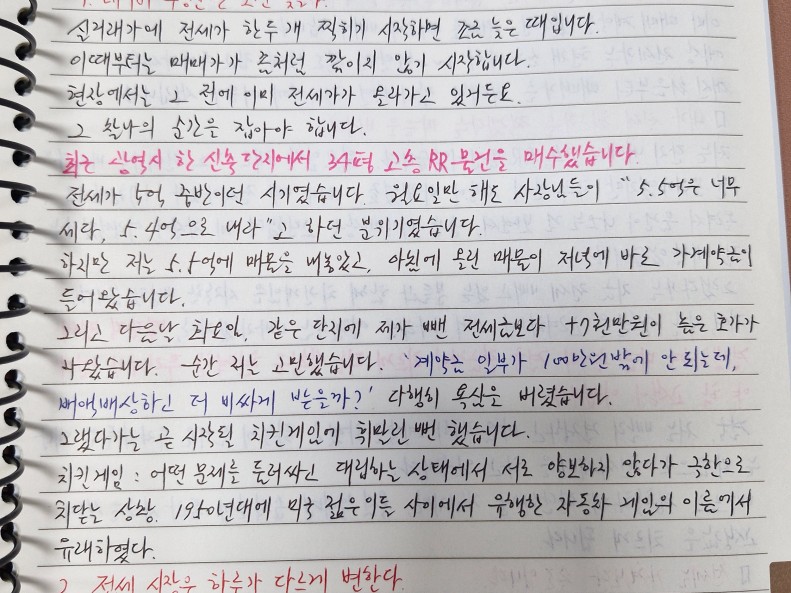 실거래가에 전세가 한두개 찍히기 시작하면 조금 늦은 때입니다.
이때부터는 매매가가 좀처럼 깎이지 않기 시작합니다.
현장에서는 그 전에 이미 전세가가 올라가고 있거든요.
그 찰나의 순간을 잡아야 합니다.
최근 광역시 한 신축단지에서 34평 고층 RR 물건을 매수했습니다.
전세가 5억 중반이던 시기였습니다. 월요일만 해도 사장님들이 "5.5억은 너무
세다, 5.4억으로 내라"고 하던 분위기였습니다.
하지만 저는 5.5억에 매물을 내놓았고, 아침에 올린 매물이 저녁에 바로 가계약금이
들어왔습니다.
그리고 다음날 화요일, 같은 단지에 제가 뺀 전세금보다 +7천만원이 높은 호가가
나왔습니다. 순간 저는 고민했습니다. '계약금 일부가 100만원밖에 안 되는데,
배액배상하고 더 비싸게 받을까?' 다행히 욕심을 버렸습니다.
그랬다가는 곧 시작될 치킨게임에 휘말린 뻔 했습니다.
치킨게임 : 어떤 문제를 둘러싸고 대립하는 상태에서 서로 양보하지 않다가 극한으로
치닫는 상황. 1950년대에 미국 젊은이들 사이에서 유행한 자동차 게임의 이름에서
유래하였다.
2. 전세 시장은 하루가 다르게 변한다.